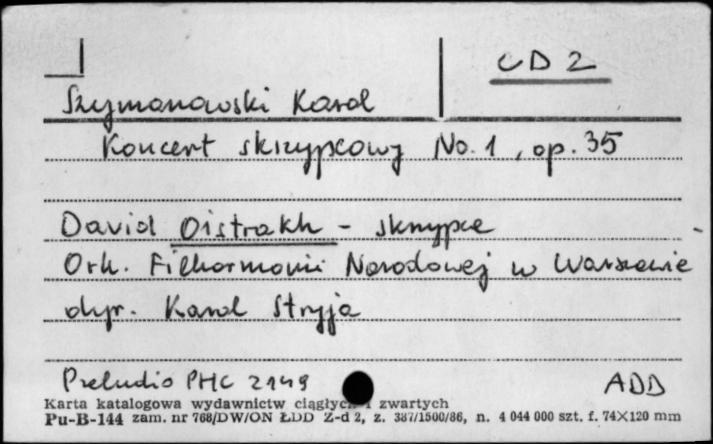 CD 2
Szymanowski Karol
Koncert skrzypcowy No. 1, op. 35
David Oistrakh - skrzypce
Ork. Filharmonii Narodowej w Warszawie
dyr. Karol Stryja
Preludio PHC 2149 ADD
Karta katalogowa wydawnictw ciągłych i zwartych
Pu-B-144 zam. nr 768/DW/ON ŁDD Z-d 2, z. 387/1500/86, n. 4 044 000 szt. f. 74×120 mm